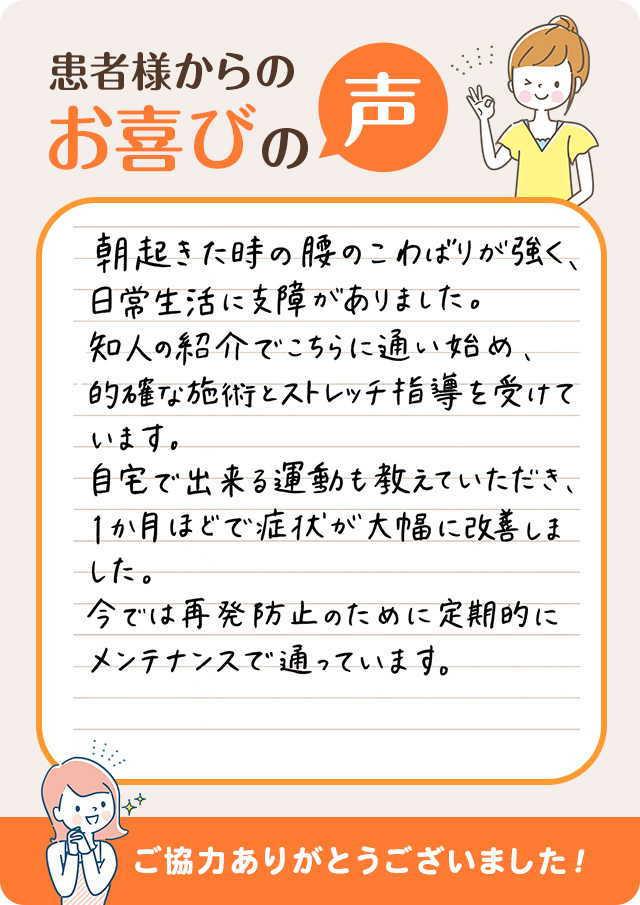 患者様からの
お喜びの声
朝起きた時の腰のこわばりが強く、
日常生活に支障がありました。
知人の紹介でこちらに通い始め、
的確な施術とストレッチ指導を受けて
います。
自宅で出来る運動も教えていただき、
1か月ほどで症状が大幅に改善しま
した。
今では再発防止のために定期的に
メンテナンスで通っています。
ご協力ありがとうございました!